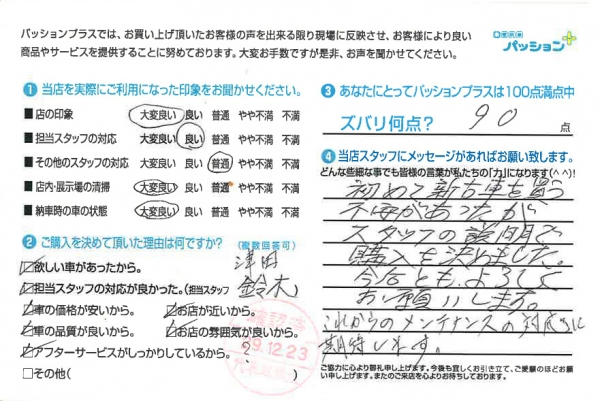 パッションプラスでは、お買い上げ頂いたお客様の声を出来る限り現場に反映させ、お客様により良い
商品やサービスを提供することに努めております。大変お手数ですが是非、お声を聞かせてください。
パッション
① 当店を実際にご利用になった印象をお聞かせください。
■店の印象 大変良い 良い 普通 やや不満 不満
■担当スタッフの対応 大変良い 良い 普通 やや不満 不満
■その他のスタッフの対応 大変良い 良い 普通 やや不満 不満
■店内・展示場の清掃 大変良い 良い 普通 やや不満 不満
■納車時の車の状態 大変良い 良い 普通 やや不満 不満
② ご購入を決めて頂いた理由は何ですか? (複数回答可)
☑欲しい車があったから。
津田
☑担当スタッフの対応が良かった。(担当スタッフ 鈴木)
☑車の価格が安いから。 ☑お店が近いから。
☑車の品質が良いから。 ☑お店の雰囲気が良いから。
☑アフターサービスがしっかりしているから。?
□その他( )
12.23
③ あなたにとってパッションプラスは100点満点中
ズバリ何点? 90 点
④ 当店スタッフにメッセージがあればお願い致します。
どんな些細な事でも皆様の言葉が私たちの「力」になります(^^)!
初めて新古車を買う
不安があったが
スタッフの説明で
購入を決めました。
今后とも、よろしく
お願いします。
これからのメンテナンスの対応に
期待します。
ご協力に心より御礼申し上げます。今後も宜しくお引き立て、ご愛顧のほどお願
い申し上げます。またのご来店を心よりお待ちしております。